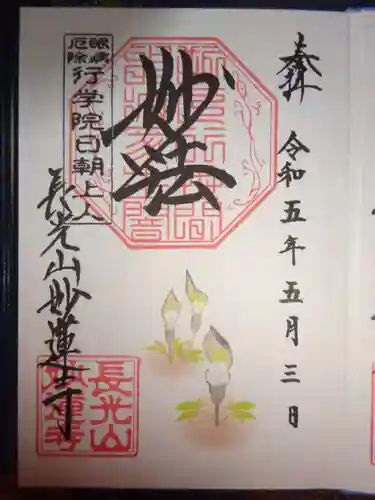 奉拝
令和五年五月三日
妙法
眼病
厄除
行学院日朝上人
長光山妙蓮寺
長光山
妙蓮寺